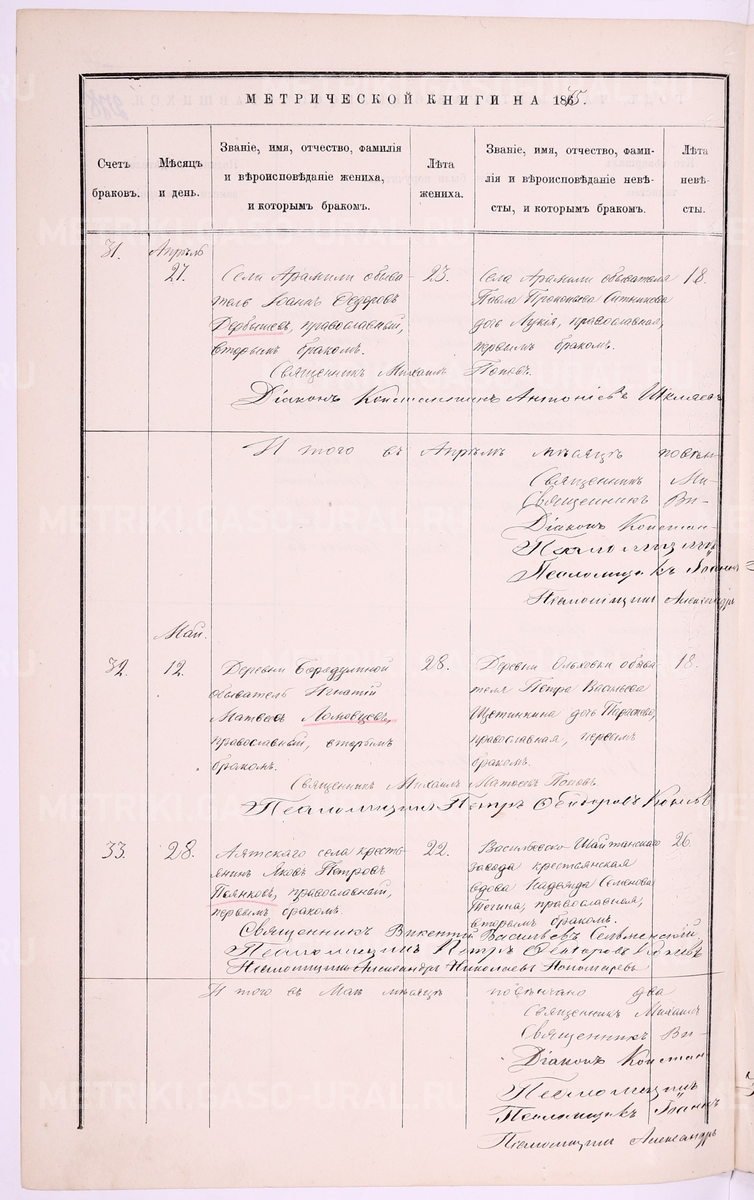 МЕТРИЧЕСКОЙ КНИГИ НА 1865.
Счетъ
браковъ.
Мѣсяцъ
и день.
Званіе, имя, отчество, фамилія
и вѣроисповѣданіе жениха,
и которымъ бракомъ.
Лѣта
жениха.
Званіе, имя, отчество, фами-
лія и вѣроисповѣданіе невѣ-
сты, и которымъ бракомъ.
Лѣта
невѣ-
сты.
31.
Апрѣль
27.
Села Арамили обыва-
тель Іоаннъ Ѳедоровъ
Дербышев, православный,
вторымъ бракомъ.
23.
Села Арамили обывателя
Павла Прокопьева Ситникова
дочь Лукія, православная,
первымъ бракомъ.
18.
Священникъ Михаилъ Поповъ.
Діаконъ Константинъ Антоніевъ
Итого въ Апрѣлѣ мѣсяцѣ повѣн-
Священникъ Ми-
Священникъ Ви-
Діаконъ Констан-
Псаломщикъ
Псаломщикъ Іоаннъ
Псаломщикъ Александръ
Май.
32.
12.
Деревни Бородулиной
обыватель Игнатій
Матвеевъ Ломовцевъ,
православный, вторымъ
бракомъ.
28.
Деревни Ольховки обыва-
теля Петра Васильева
Щетинкина дочь Параскева,
православная, первымъ
бракомъ.
18.
Священникъ Михаилъ Матѳеевъ Поповъ
Псаломщикъ Петръ Ѳеодоровъ
33.
28.
Аятскаго села кресть-
янинъ Яковъ Петровъ
Пьянковъ, православный,
первымъ бракомъ
22.
Васильевско-Шайтанскаго
завода крестьянская
вдова Надежда Семенова
православная,
вторымъ бракомъ.
26.
Священникъ Викентій Васильевъ Сельменскій
Псаломщикъ Петръ Ѳеодоровъ
Псаломщикъ Александръ Николаевъ Пономаревъ
Итого въ Маѣ мѣсяцѣ повѣнчано два
Священникъ Михаилъ
Священникъ Ви-
Діаконъ Констан-
Псаломщикъ
Псаломщикъ Іоаннъ
Псаломщикъ Александръ
METRIKI.GASO-URAL.RU